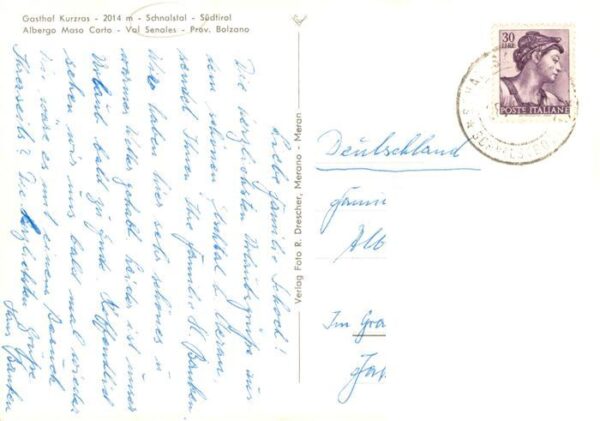 Gasthof Kurzras - 2014 m - Schnalstal - Südtirol
Albergo Maso Corto - Val Senales - Prov. Bolzano
Liebe Familie
Die herzlichsten Urlaubsgrüße aus
dem schönen b. Meran
sendet Ihnen Ihre Familie H. Banken.
Wir haben hier sehr schönes u.
warmes Wetter gehabt leider ist unser
Urlaub bald zu Ende. Hoffentlich
sehen wir uns bald mal wieder
Wie wäre es mit einem Besuch
Ihrerseits? Die herzlichsten Grüße
Hans Banken
Verlag Foto R. Drescher, Merano - Meran
30
LIRE
POSTE ITALIANE
Deutschland
Famil
Alb
Im Gra